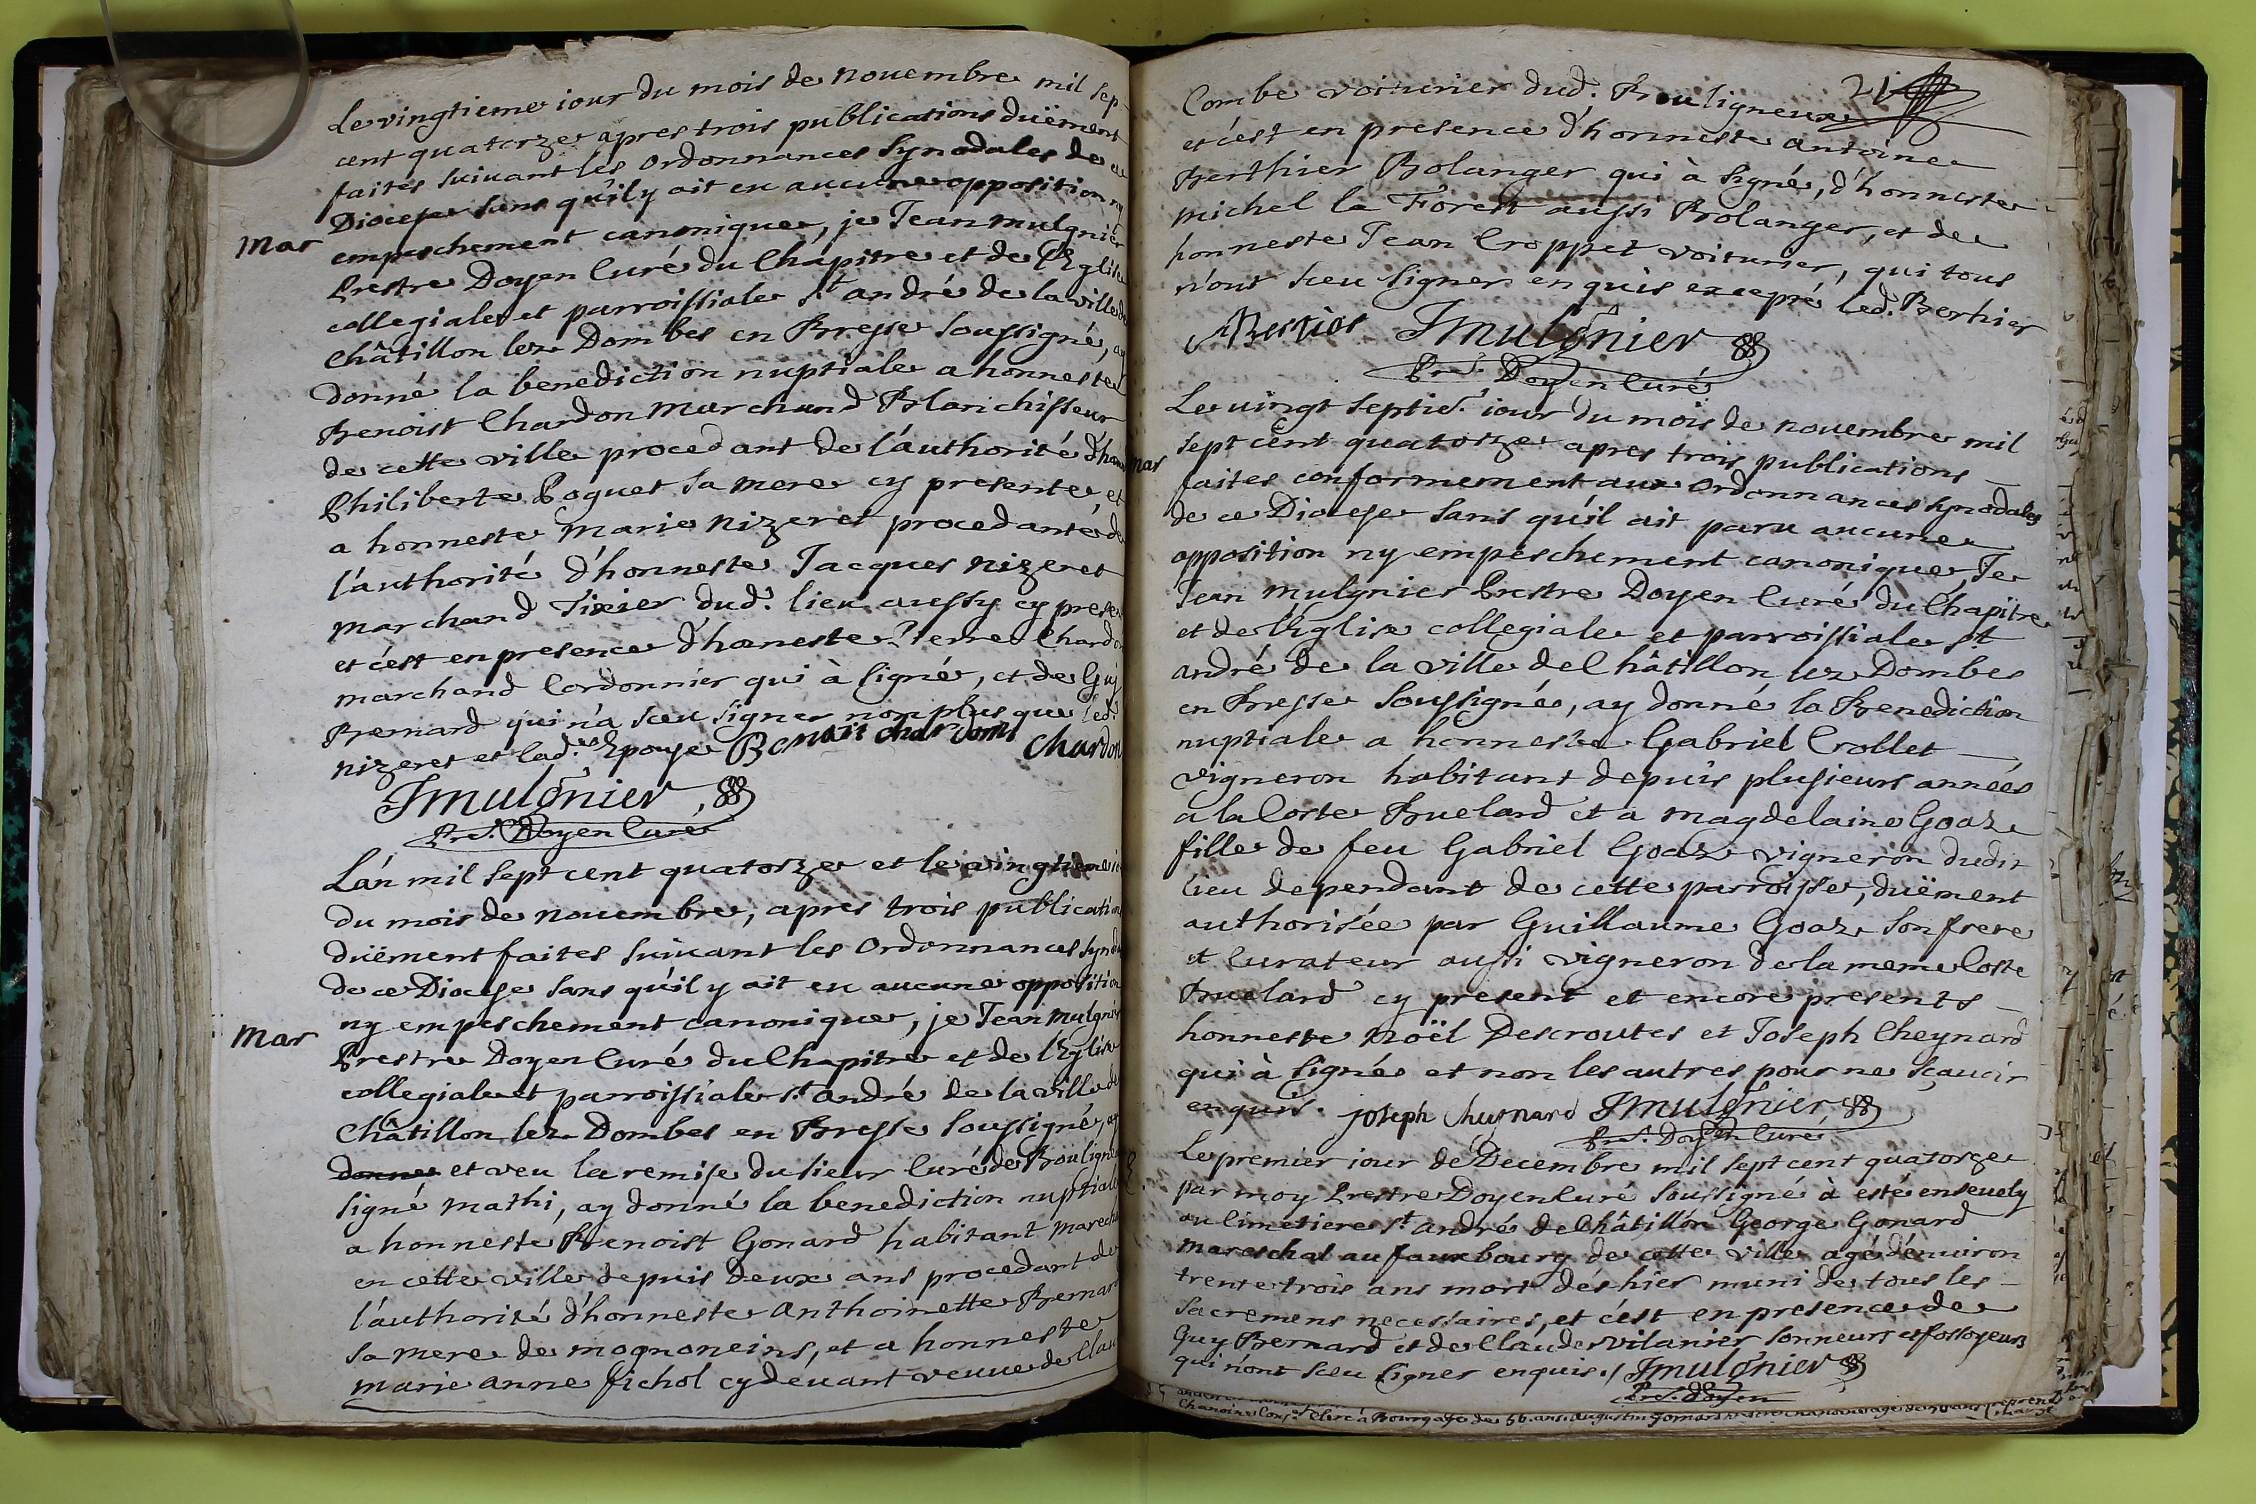 Le vingtieme iour du mois de nouembre mil sep
cent quatorze apres trois publications duëment
faites suiuant les ordonnances synodales de ce
Diocese sans qu'il y ait eu aucune opposition ny
Mar
empeschement canonique, je Jean mulgnier
Prestre Doyen Curé du Chapitre et de l'Eglise
collegiale et parroissiale st andré de la ville de
Châtillon lez Dombes en Bresse soussigné, ay
donné la benediction nuptiale a honneste
Benoist Chardon marchand Blanchisseur
de cette ville procedant de l'authorité d'hon
Philiberte Poguet sa mere cy presente, et
a honneste Marie nizeret procedante de
l'authorité d'honneste Jacques nizeret
marchand Tixier dud. lieu aussy cy presen
et c'est en presence d'honeste Pierre Chardon
marchand Cordonnier qui à signé, et de Guy
Bernard qui n'a sceu signer non plus que led.
nizeret et lad. Epouse Benoit chardont chardon
JMulgnier
Pre. Doyen Curé
L'an mil sept cent quatorze et le vingtieme i
du mois de nouembre, apres trois publication
duëment faites suiuant les ordonnances synod
de ce Diocese sans qu'il y ait eu aucune opposition
ny empeschement canonique, je Jean mulgnier
Mar
Prestre Doyen Curé du Chapitre et de l'Eglise
collegiale et parroissiale st andré de la ville de
Châtillon lez Dombes en Bresse soussigné, ay
donné et veu la remise du sieur Curé de Bouligne
signé mathi, ay donné la benediction nuptiale
a honneste Benoist Gonard habitant marecha
en cette ville depuis deux ans procedant de
l'authorité d'honneste anthoinette Bernard
sa mere de mognoneins, et a honneste
marie anne fichol cy deuant veuue de Clau
21
Combe voiturier dud. Bouligneux
et c'est en presence d'honneste antoine
Berthier Bolanger qui à signé, d'honneste
michel la Forest aussi Bolanger, et de
honneste Jean Croppet voiturier, qui tous
n'ont sceu signer enquis excepté led. Berthier
JMulgnier
Pre. Doyen Curé
Le vingt septie. iour du mois de nouembre mil
sept cent quatorze apres trois publications
Mar
faites conformement aux ordonnances synodales
de ce Diocese sans qu'il ait paru aucune
opposition ny empeschement canonique, Je
Jean mulgnier Prestre Doyen Curé du Chapitre
et de l'Eglise collegiale et parroissiale st
andré de la ville de Châtillon lez Dombes
en Bresse soussigné, ay donné la Benediction
nuptiale a honneste Gabriel Crollet
vigneron habitant depuis plusieurs années
a la Coste Bruelard et a magdelaine Goaz
fille de feu Gabriel Goaz vigneron dudit
lieu dependant de cette parroisse, duëment
authorisée par Guillaume Goaz son frere
et Curateur aussi vigneron de la meme Coste
Bruelard cy present et encore presents
honneste Noël Descroutes et Joseph Cheynard
qui à signé et non les autres pour ne sçauoir
enquis. joseph Cheynard JMulgnier
Pre. Doyen Curé
Le premier iour de Decembre mil sept cent quatorze
par moy Prestre Doyen Curé soussigné à esté enseuely
au Cimetiere st andré de Châtillon George Gonard
mareschal au fauxbourg de cette ville agé d'enuiron
trente trois ans mort dés hier muni de tous les
sacremens necessaires, et c'est en presence de
Guy Bernard et de Claude vilanier sonneurs et fossoyeurs
qui n'ont sceu signer enquis./ JMulgnier
Pre. doyen